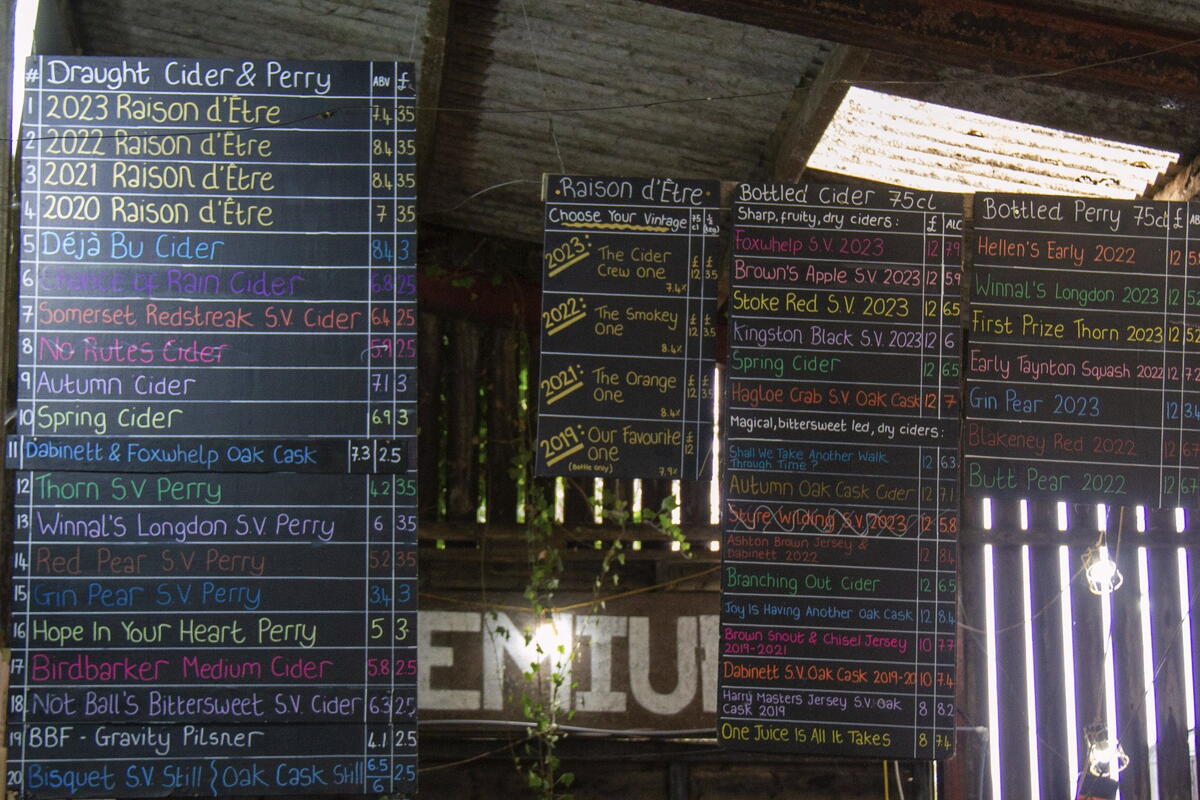 # Draught Cider & Perry ABV £
1 2023 Raison d'Être 7.4 3.5
2 2022 Raison d'Être 8.4 3.5
3 2021 Raison d'Être 8.4 3.5
4 2020 Raison d'Être 7 3.5
5 Déjà Bu Cider 8.4 3
6 Chance of Rain Cider 6.8 2.5
7 Somerset Redstreak S.V. Cider 6.4 2.5
8 No Rutes Cider 5.9 2.5
9 Autumn Cider 7.1 3
10 Spring Cider 6.9 3
11 Dabinett & Foxwhelp Oak Cask 7.3 2.5
12 Thorn S.V Perry 4.2 3.5
13 Winnal's Longdon S.V. Perry 6 3.5
14 Red Pear S.V Perry 5.2 3.5
15 Gin Pear S.V. Perry 3.4 3
16 Hope In Your Heart Perry 5 3
17 Birdbarker Medium Cider 5.8 2.5
18 Not Ball's Bittersweet S.V. Cider 6.3 2.5
19 BBF - Gravity Pilsner 4.1 2.5
20 Bisquet S.V. Still { Oak Cask Still 6.5 6 2.5
Raison d'Être
Choose Your Vintage 75 cl ½ (keg)
2023: The Cider £ £
Crew one 12 3.5
7.4%
2022: The Smokey £ £
one 12 3.5
8.4%
2021: The Orange £ £
one 12 3.5
8.4%
2019: Our Favourite £
one 12
(Bottle only) 7.9%
Bottled Cider 75cl
Sharp, fruity, dry ciders: £ ALC
Foxwhelp S.V. 2023 12 7.9
Brown's Apple S.V. 2023 12 5.9
Stoke Red S.V. 2023 12 6.5
Kingston Black S.V. 2023 12 6
Spring Cider 12 6.5
Hagloe Crab S.V. Oak Cask 12 7
Magical, bittersweet led, dry ciders:
Shall We Take Another Walk
Through Time? 12 6.3
Autumn Oak Cask Cider 12 7.1
Styre Wilding S.V. 2023 12 5.8
Ashton Brown Jersey &
Dabinett 2022 12 8.4
Branching Out Cider 12 6.5
Joy Is Having Another Oak Cask 12 8.4
Brown Snout & Chisel Jersey
2019-2021 10 7.7
Dabinett S.V. Oak Cask 2019-20 10 7.4
Harry Masters Jersey S.V. Oak
Cask 2019 8 8.2
One Juice Is All It Takes 8 7.4
Bottled Perry 75cl £
Hellen's Early 2022 12
Winnal's Longdon 2023 12
First Prize Thorn 2023 12 5.2
Early Taynton Squash 2022 12 7.2
Gin Pear 2023 12 3.4
Blakeney Red 2022 12 6.7
Butt Pear 2022 12 6.7
EMIU